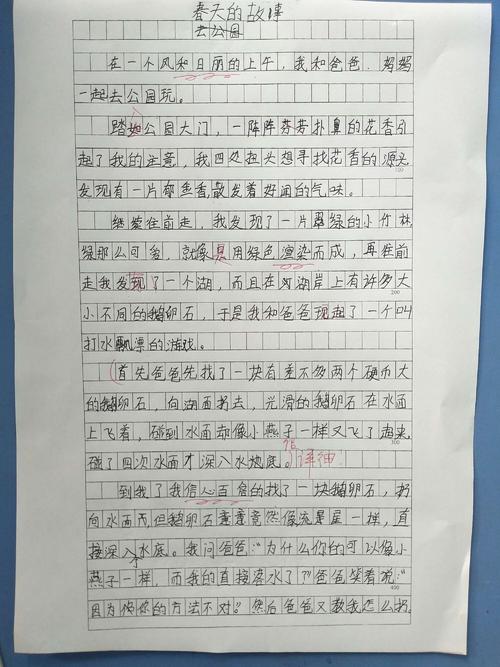 春天的故事
去公园
在一个风和日丽的上午，我和爸爸.妈妈
一起去公园玩。
踏公园大门，一阵阵芬芳扑鼻的花香引
起了我的注意，我四处扭头想寻找花香的源头
发现有一片郁金香散发着好闻的气味。
继续往前走，我发现了一片翠绿的小竹林
绿那么可爱，就像是用绿色渲染而成，再往前
走我发现了一个湖，而且在湖岸上有许多大
小不同的鹅卵石，于是我和爸爸现起了一个叫
打水飘漂的游戏。
首先爸爸先找了一块有差不多两个硬币大
的鹅卵石，向湖面拐去，光滑的鹅卵石在水面
上飞着，碰到水面却像小燕子一样又飞了起来
碰了四次水面才深入水地底。
详细
到我了我信心百倍的找了一块鹅卵石，扔
向水面而但鹅卵石竟然像流星一样，直
接深入水底。我问爸爸："为什么你的可以像小
燕子一样，而我的直接落水了？"爸爸笑着说："
因为你的方法不对。"然后爸爸又教我怎么拐。
100
200
300
400